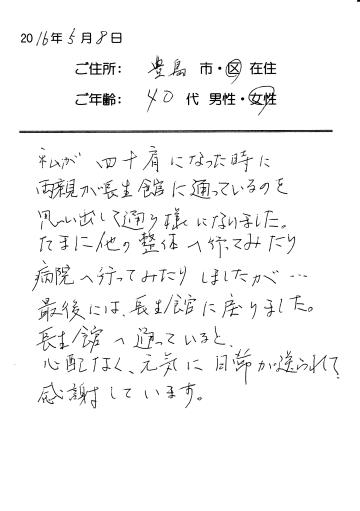 2016年5月8日
ご住所: 豊島 市・区 在住
ご年齢: 40 代 男性・女性
私が 四十肩になった時に
両親が長生館に通っているのを
思い出して通う様になりました。
たまに他の整体へ行ってみたり
病院へ行ってみたりしましたが…
最後には、長生館に戻りました。
長生館へ通っていると、
心配なく、元気に日々が送られて、
感謝しています。